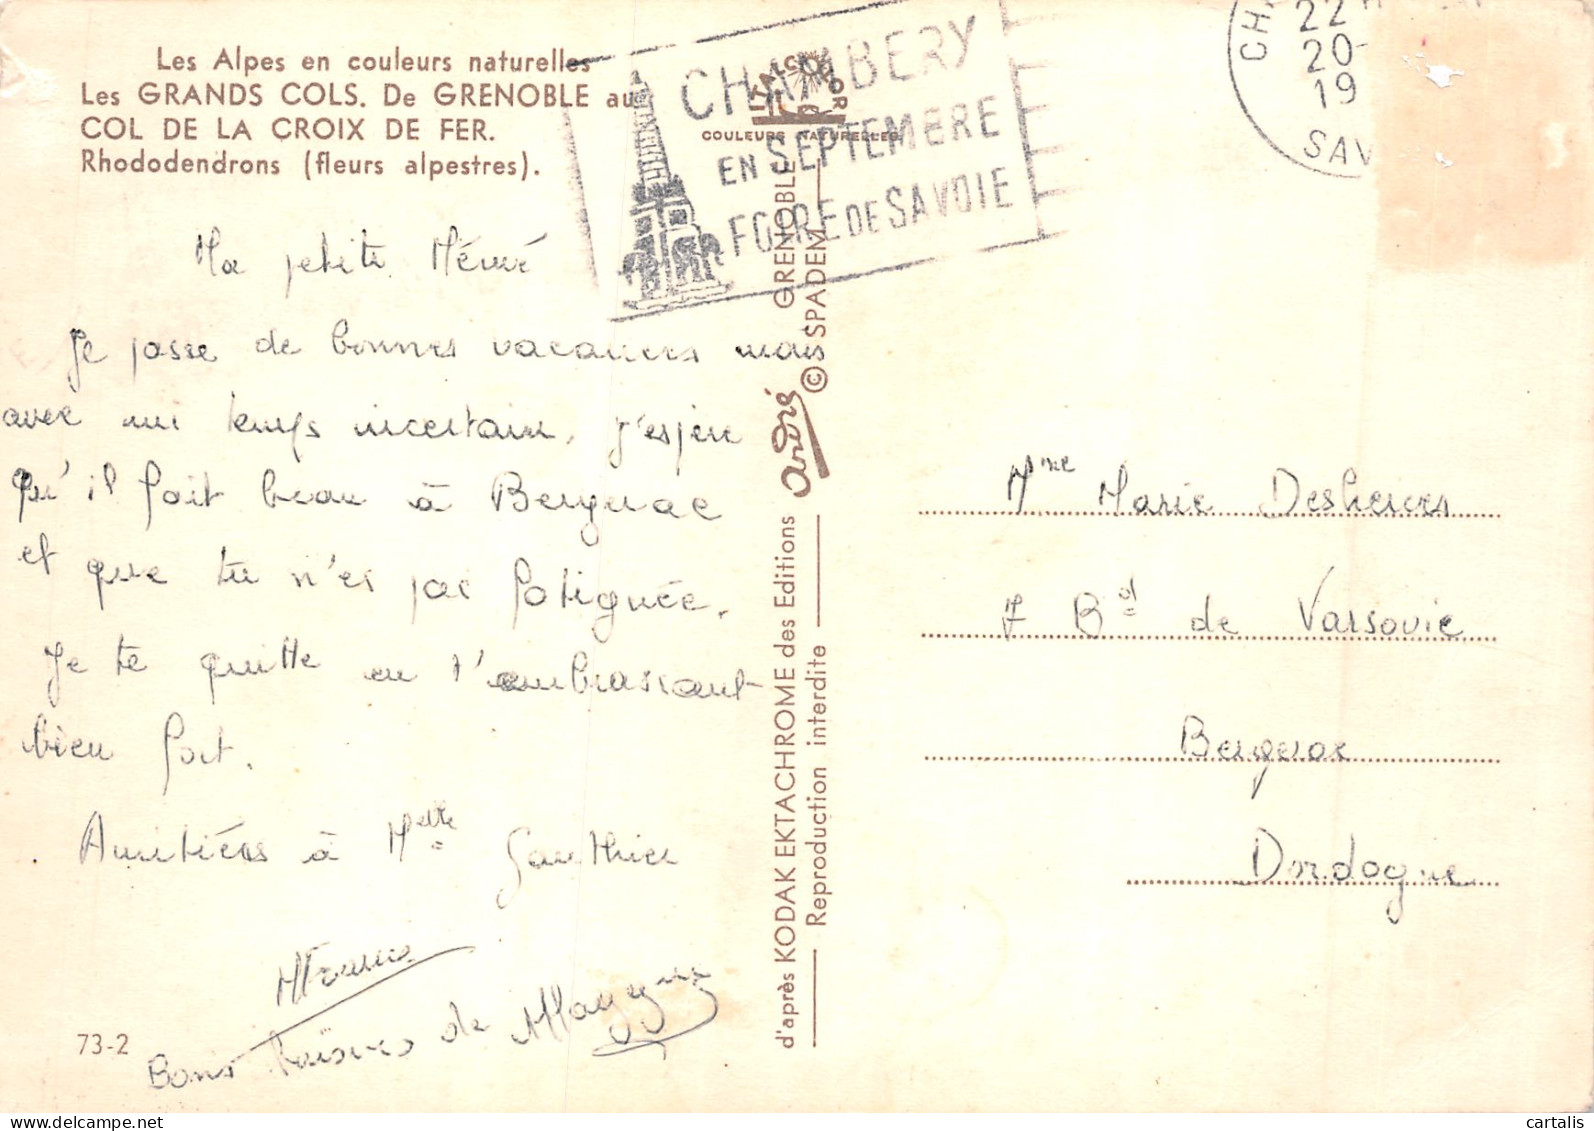 Les Alpes en couleurs naturelles
Les GRANDS COLS. De GRENOBLE au
COL DE LA CROIX DE FER.
Rhododendrons (fleurs alpestres).
CHAMBERY
EN SEPTEMBRE
FOIRE DE SAVOIE
ITALCOLOR
COULEURS NATURELLES
22
20-
19
SAV
Ma petite Mémé
Je passe de bonnes vacances mais
avec un temps incertain. J'espère
qu'il fait beau à Bergerac
et que tu n'es pas fatiguée.
Je te quitte en t'embrassant
bien fort.
Amitiés à Melle Gauthier
Bons baisers de
73-2
d'après KODAK EKTACHROME des Editions André GRENOBLE
Reproduction interdite © SPADEM
Mme Marie
7 Bd de Varsovie
Bergerac
Dordogne
cartalis
www.delcampe.net